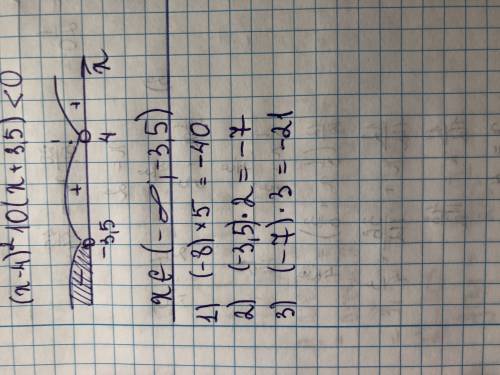 (x-4)² 10(x+3,5) < 0
- + + x
-3,5 4
x ∈ (-∞; -3,5)
1) (-8) × 5 = -40
2) (-3,5) · 2 = -7
3) (-7) · 3 = -21